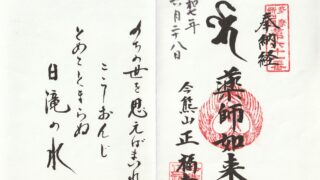 奉納経
薬師如来
今熊山 正福
和七年
六月二八日
のちの世を思えばまいれ
こうおんじ
とめてとまらぬ
白滝の水